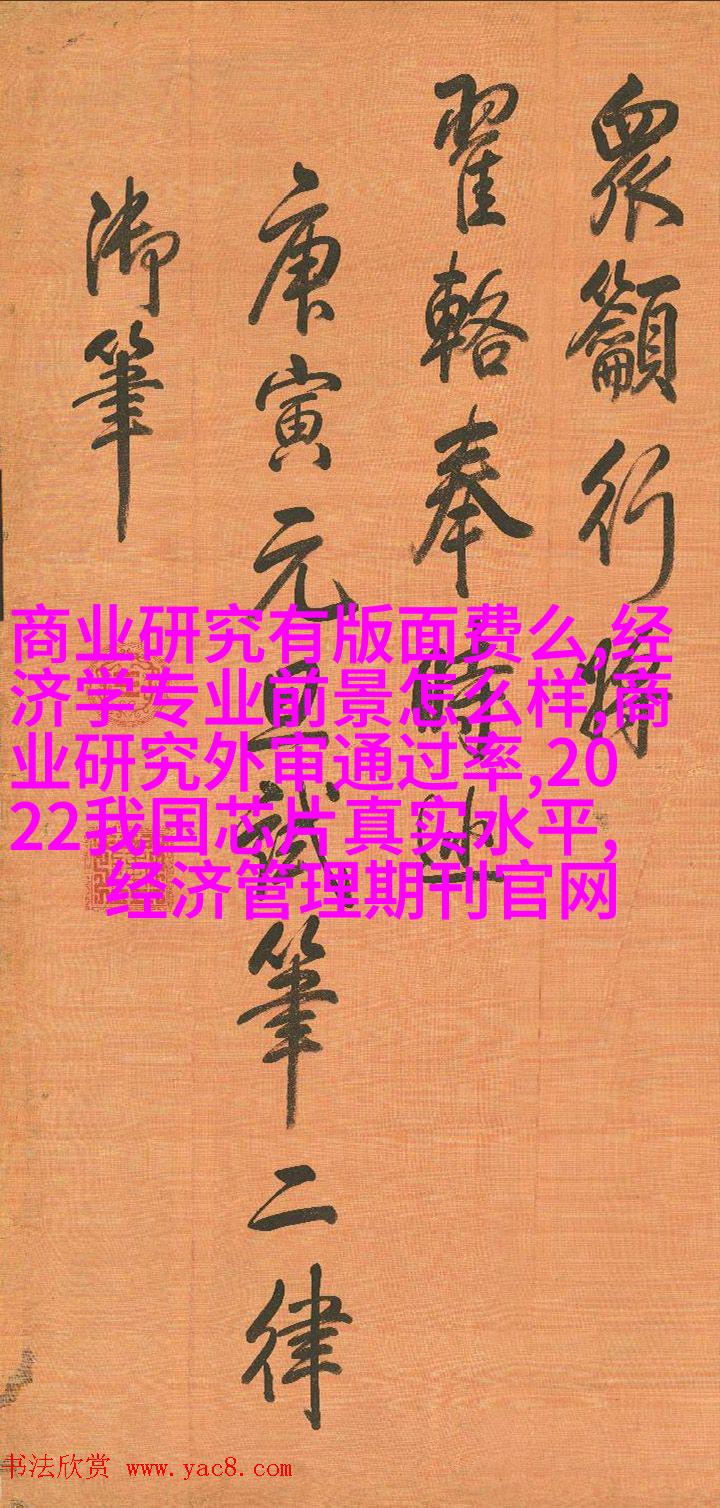 衆籲行將
翟輅奉時巡
庚寅元旦試筆二律
御筆
商业研究有版面费么,经
济学专业前景怎么样,商
业研究外审通过率,20
22我国芯片真实水平,
经济管理期刊官网
书法欣赏 www.yac8.com